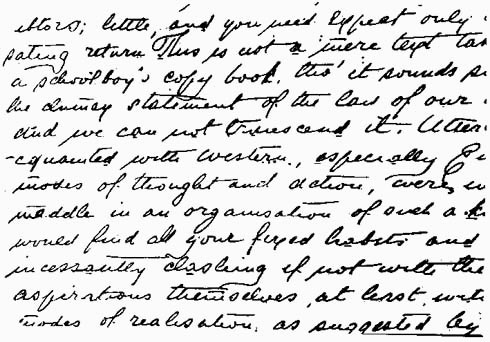 ittors; little, and you need expect only
pating return This is not a mere text tas
a schoolboy's copy book, tho' it sounds
the clumsy statement of the law of our
and we can not transcend it. Utter
-cquainted with Western, especially E
modes of thought and action, were
meddle in an organisation of such a k
would find all your fixed habits and
incessantly clashing if not with the
aspirations themselves, at least with
modes of realisation, as suggested by